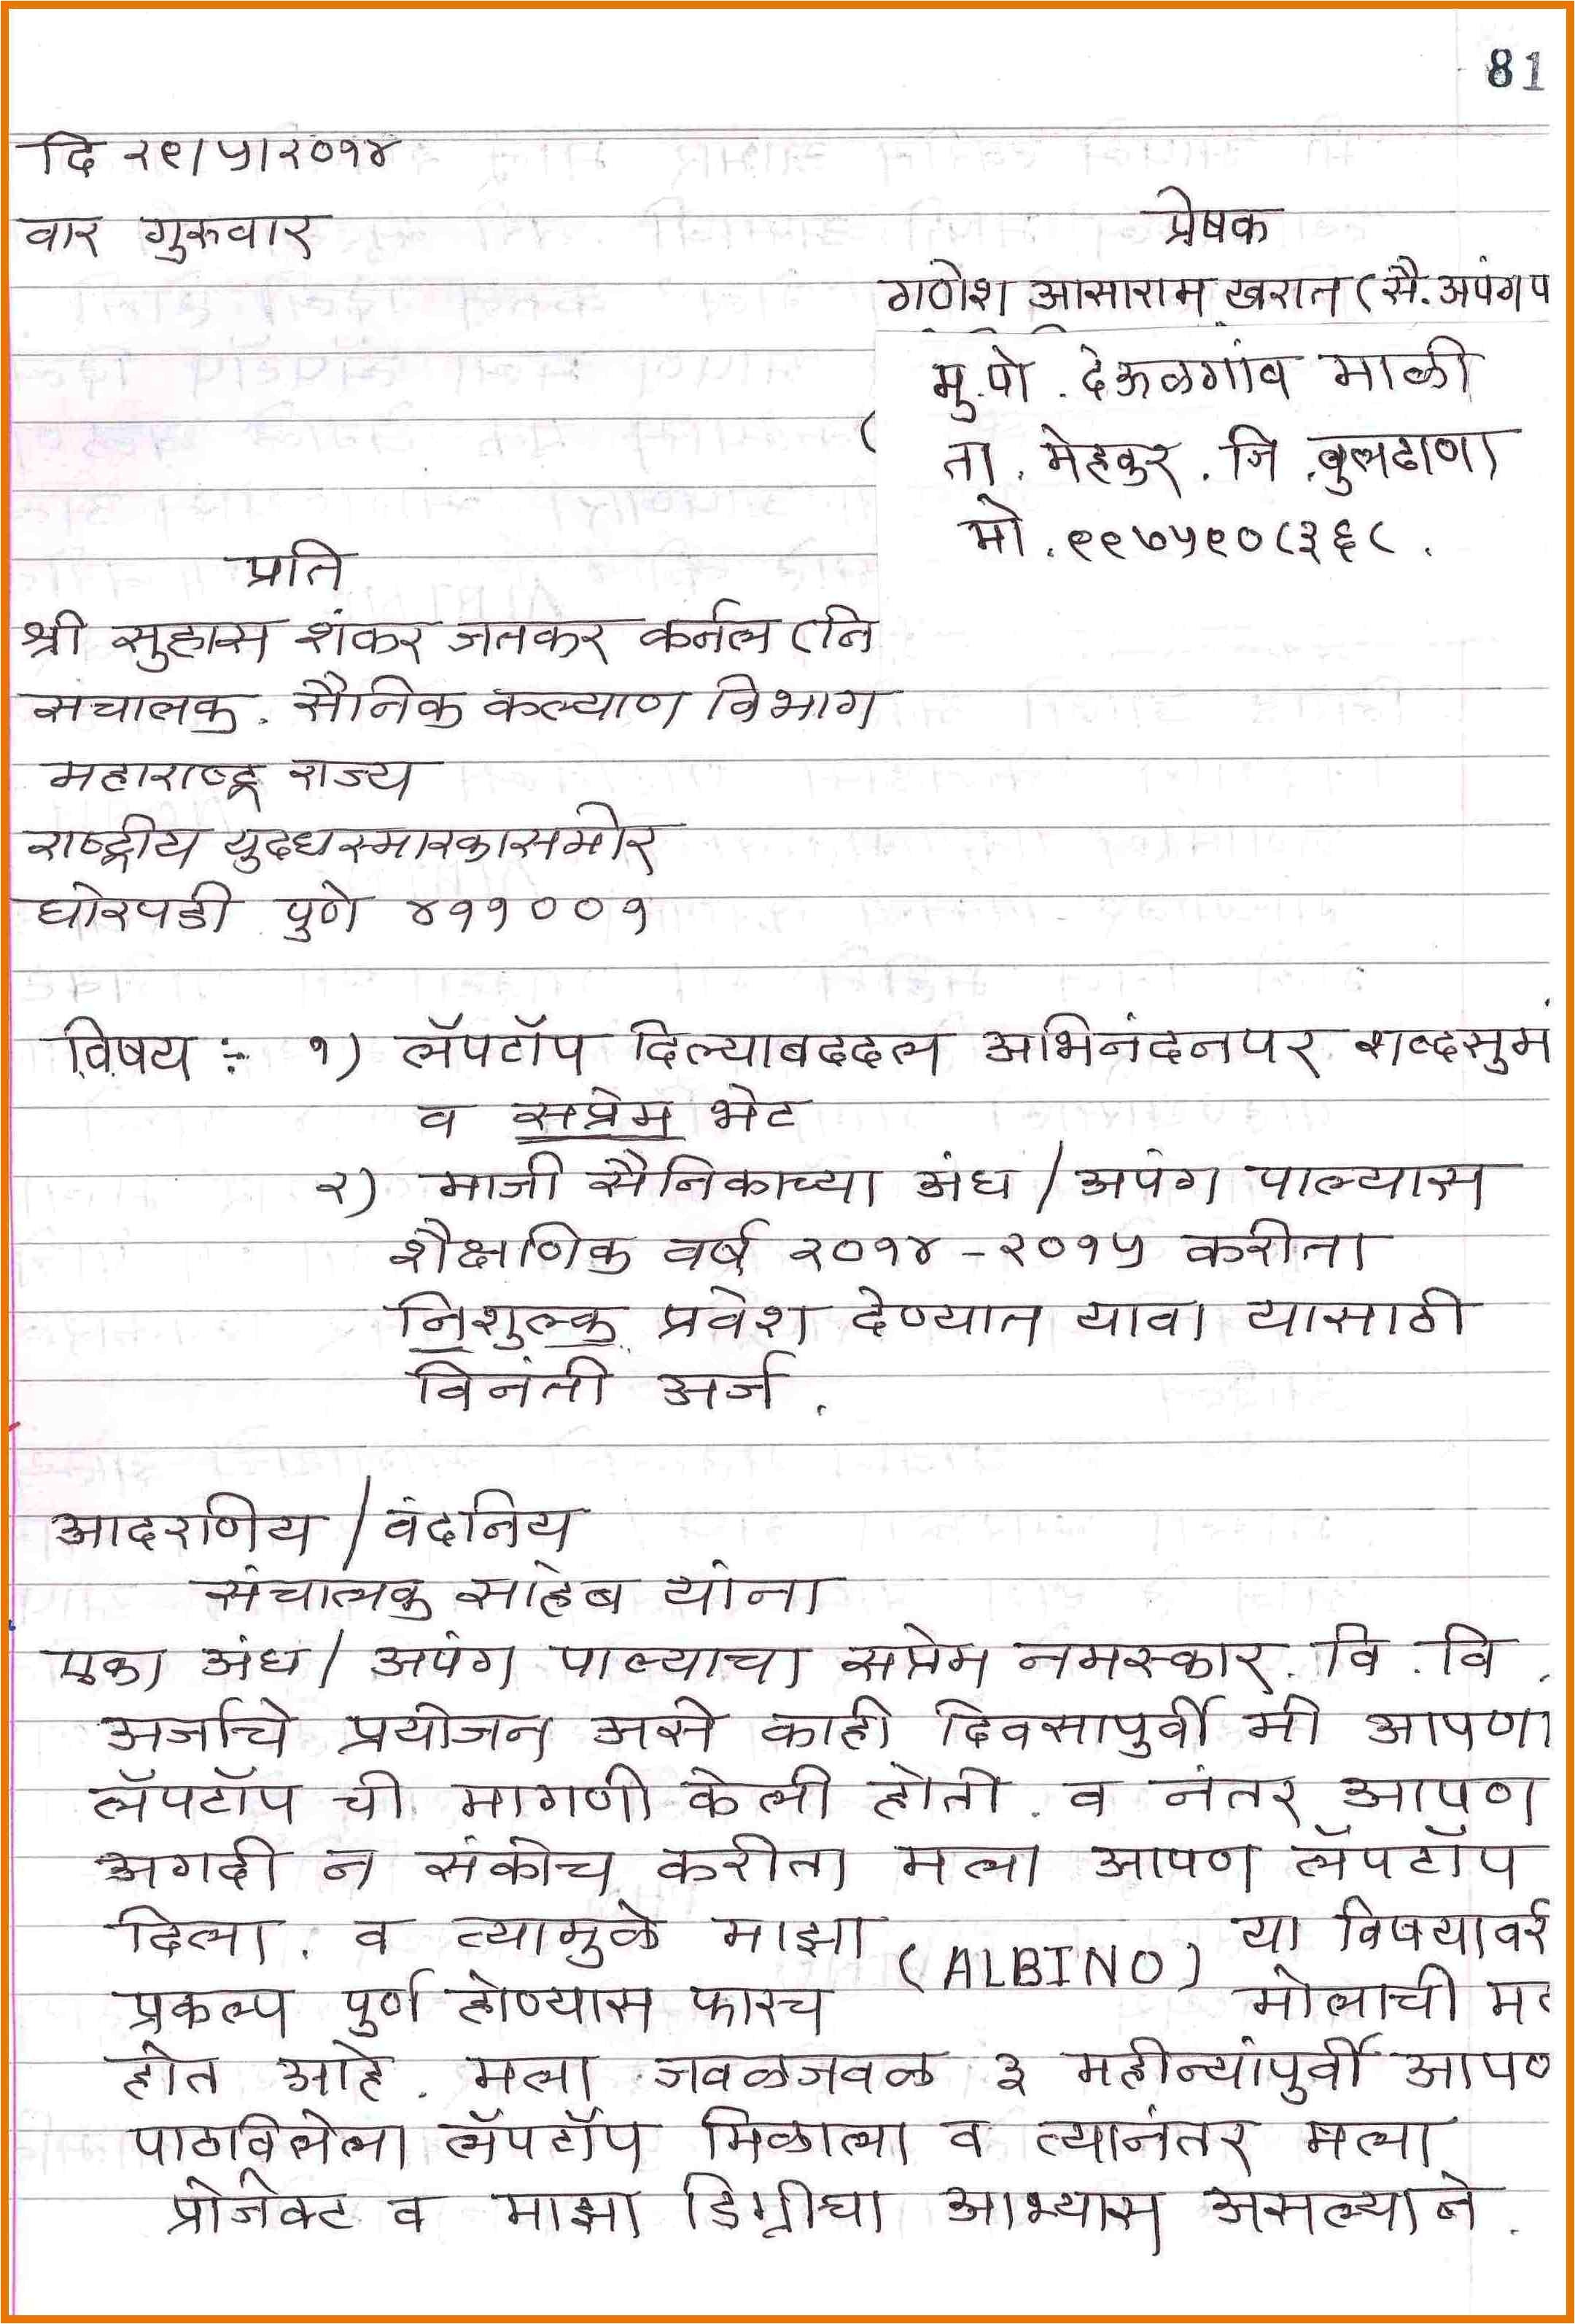 81
दि २९/५/२०१४
वार गुरुवार
प्रेषक
गणेश आसाराम खरात (सै. अपंग प
मु.पो. देऊळगांव माळी
(
ता. मेहकुर. जि. बुलढाणा
मो. ९९७५९०८३६८.
प्रति
श्री सुहास शंकर जतकर कर्नल (नि
संचालक. सैनिक कल्याण विभाग
महाराष्ट्र राज्य
राष्ट्रीय युद्धस्मारकासमोर
घोरपडी पुणे ४११००१
विषय :- १) लॅपटॉप दिल्याबददल अभिनंदनपर शब्दसुमं
व सप्रेम भेट
२) माजी सैनिकाच्या अंध / अपंग पाल्यास
शैक्षणिक वर्ष २०१४ - २०१५ करीता
निशुल्क प्रवेश देण्यात यावा यासाठी
विनंती अर्ज.
आदरणिय / वंदनिय
संचालक साहेब यांना
एका अंध / अपंग पाल्याचा सप्रेम नमस्कार. वि. वि.
अर्जाचे प्रयोजन असे काही दिवसापुर्वी मी आपणा
लॅपटॉप ची मागणी केली होती. व नंतर आपण
अगदी न संकोच करीता मला आपण लॅपटॉप
दिला. व त्यामुळे माझा (ALBINO) या विषयावर
प्रकल्प पुर्ण होण्यास फारच मोलाची मद
होत आहे. मला जवळजवळ ३ महीन्यांपुर्वी आपण
पाठविलेला लॅपटॉप मिळाला व त्यानंतर मला
प्रोजेक्ट व माझा डिग्रीचा आभ्यास असल्याने.